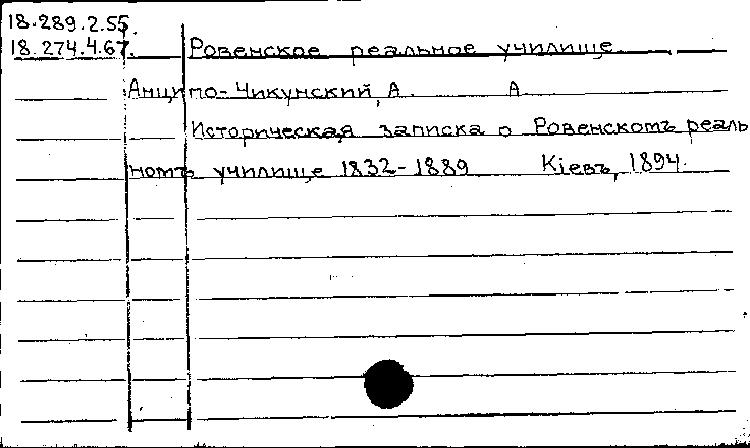 18.289.2.55.
18.274.4.67. Ровенское реальное училище.
Анципо-Чикунский, А. А
Историческая записка о Ровенскомъ реаль
номъ училище 1832-1889 Кіевъ, 1894.